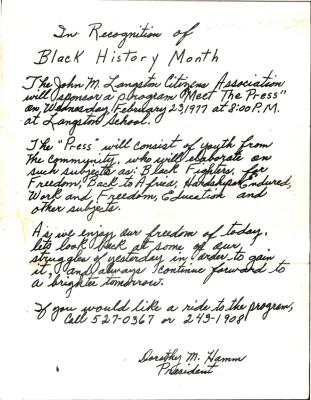 In Recognition of
Black History Month
The John M. Langston Citizens Association
will sponsor a program "Meet The Press"
on, Wednesday, February 23, 1977 at 8:00 P.M.
at Langston School.
The "Press" will consist of youth from
the community, who will elaborate on
such subjects as: Black Fighters, For
Freedom, Back to Africa, Hardships Endured,
Work and Freedom, Education and
other subjects.
As we enjoy our freedom of today,
lets look back at some of our
struggles of yesterday in order to gain
it, and always continue forward to
a brighter tomorrow.
If you would like a ride to the program,
Call 527-0367 or 243-1908
Dorothy M. Hamm
President